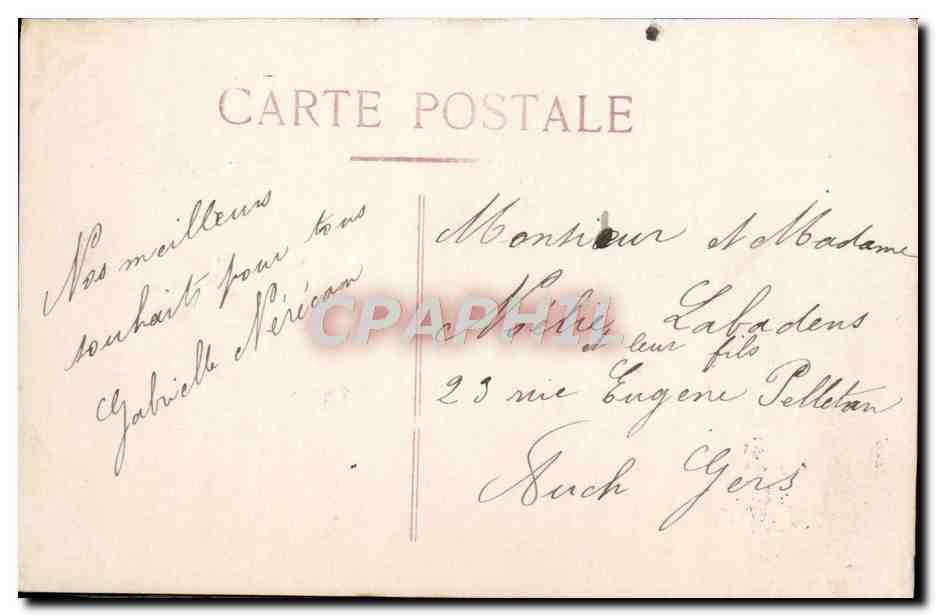 CARTE POSTALE
Nos meilleurs
souhaits pour tous
Gabrielle Nérécan
Monsieur et Madame
Labadens
et leur fils
23 rue Eugene Pelletan
Auch Gers
CPAPHIL